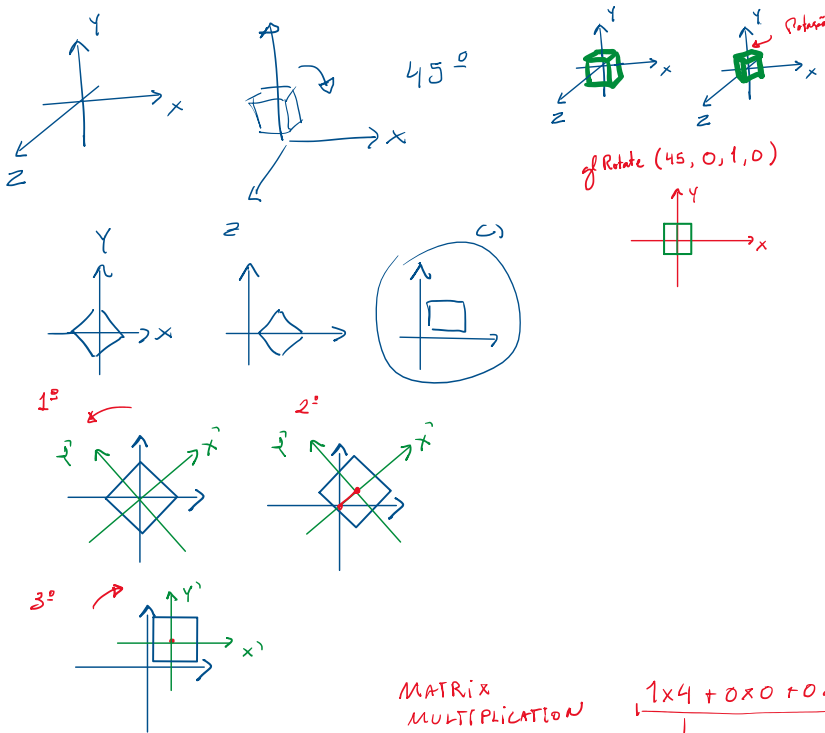 Y
X
Z
45º
X
Z
Y
X
Z
Y
X
Z
glRotate (45, 0, 1, 0)
Y
X
Y
X
C)
1º
Y'
X'
2º
Y'
X'
3º
Y'
X'
MATRIX
MULTIPLICATION
1x4 + 0x0 + 0.